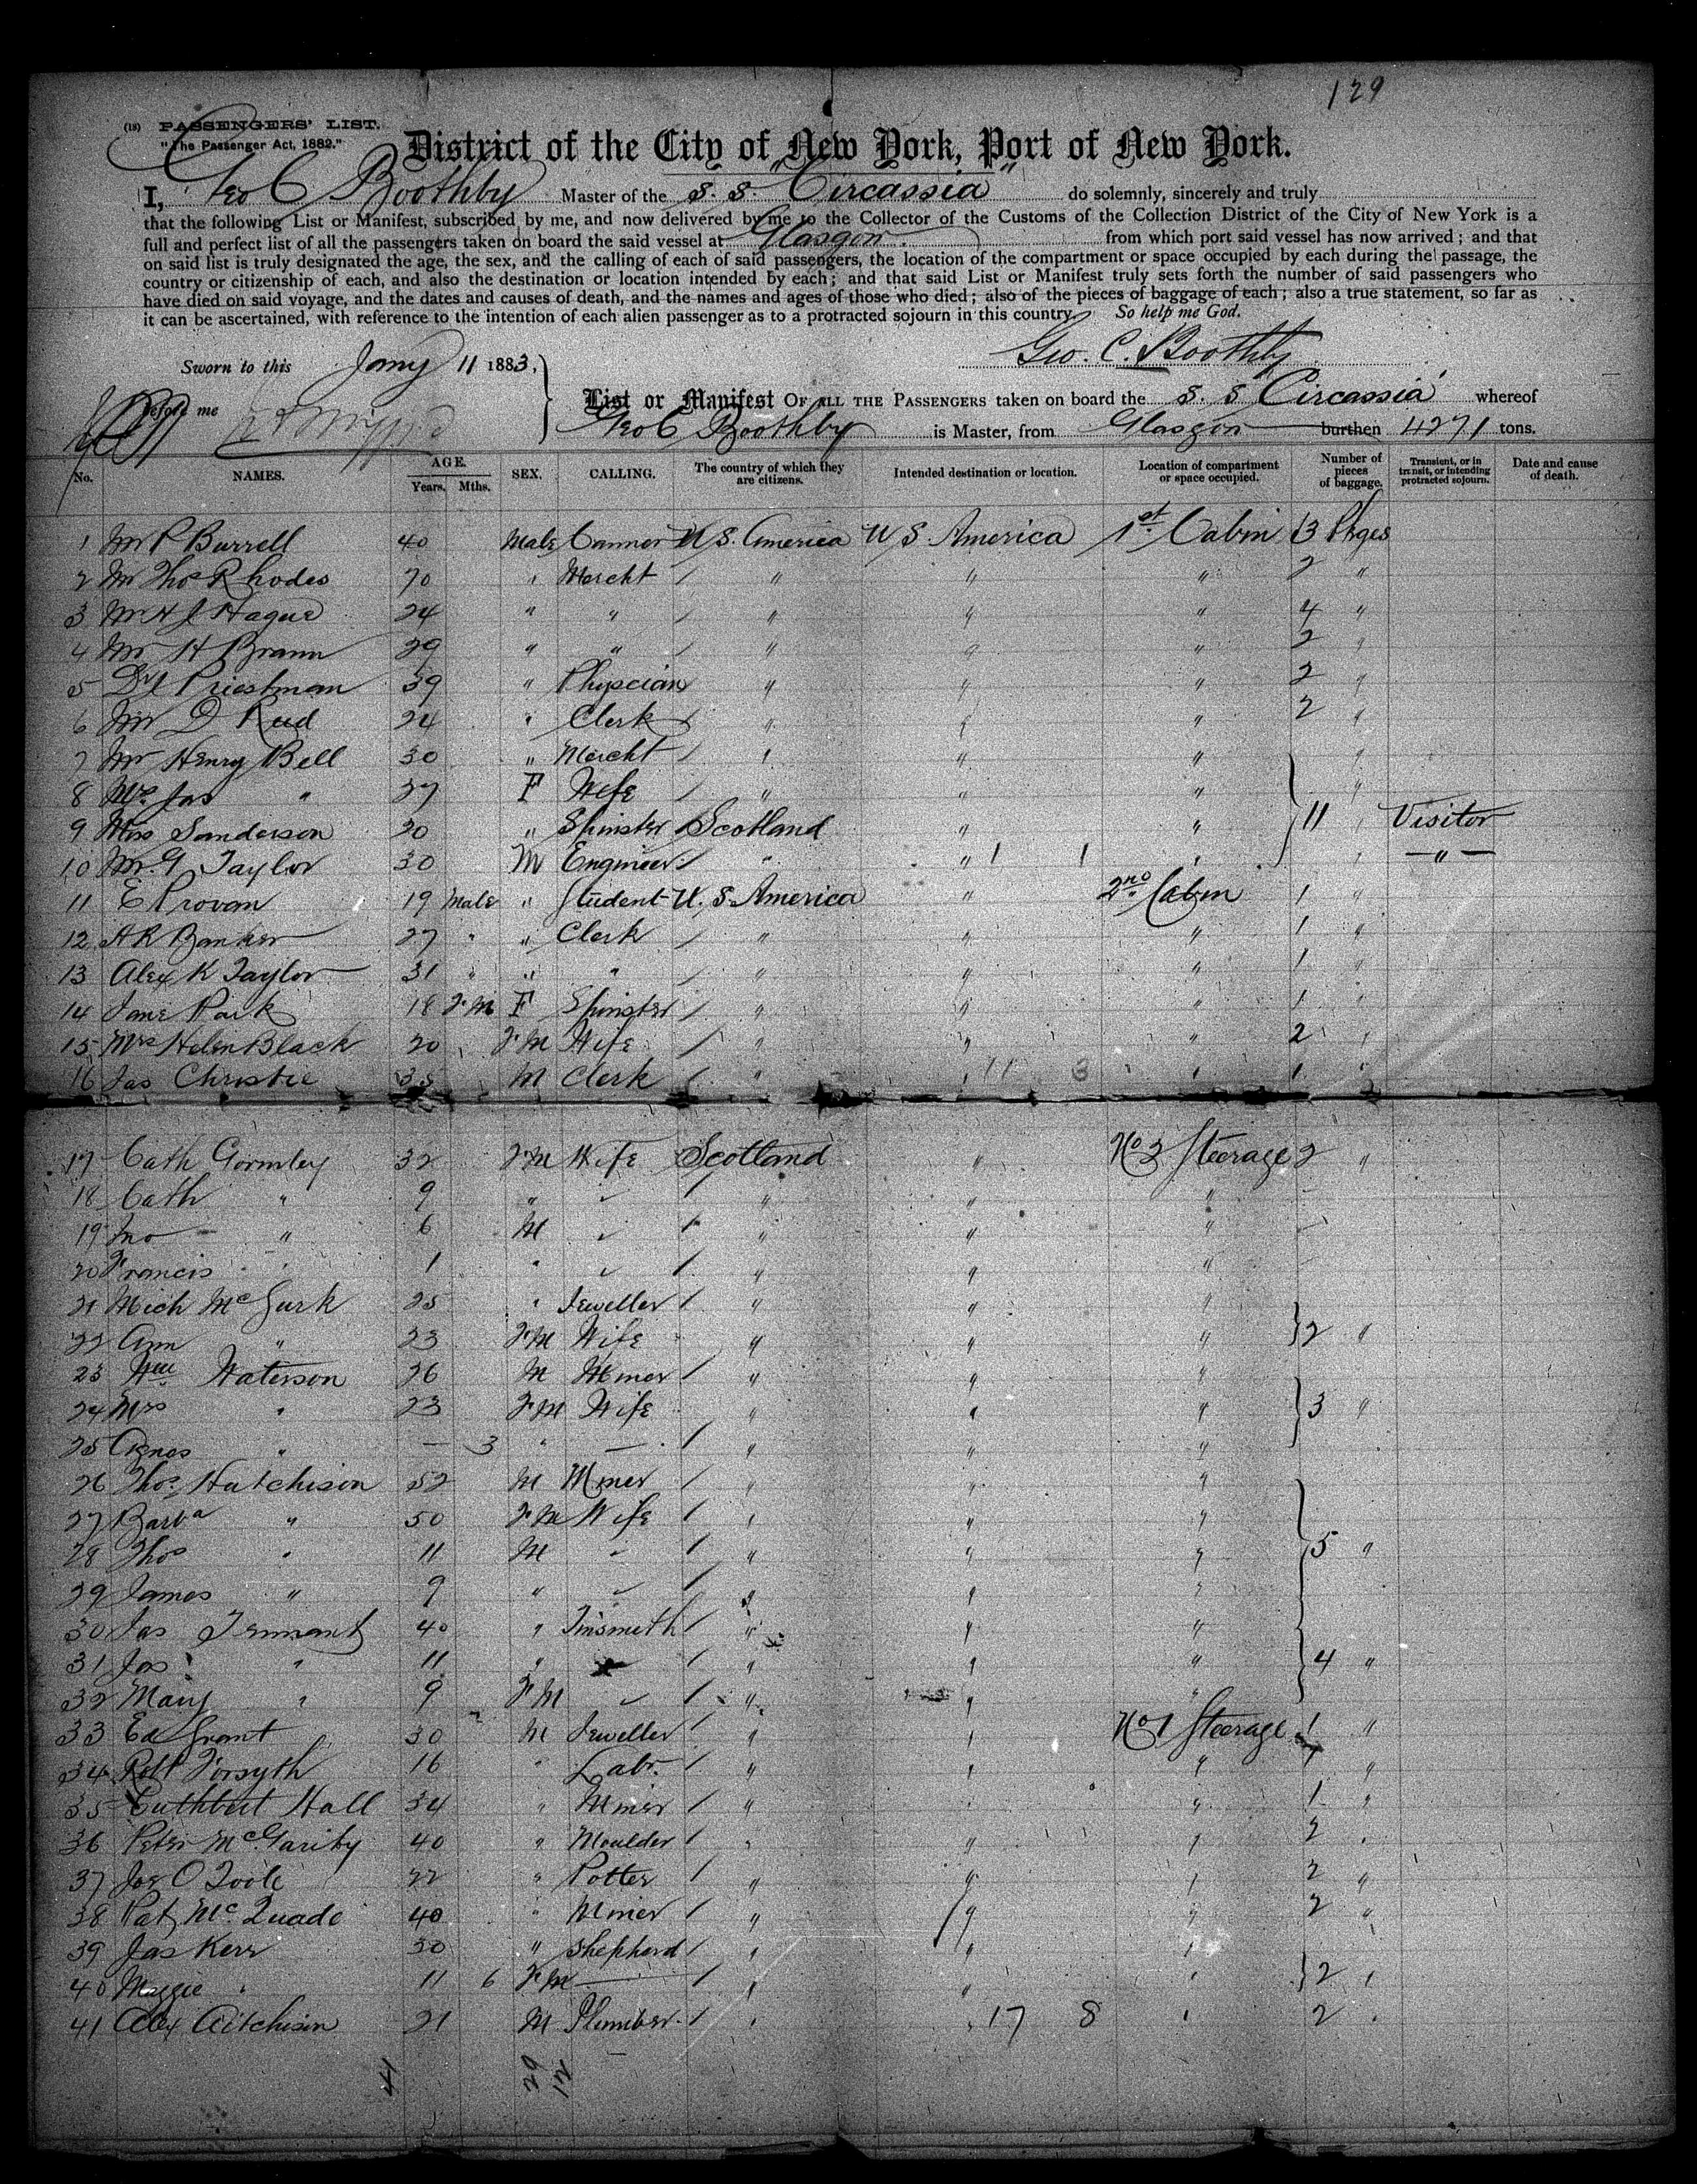 129
(18) PASSENGERS' LIST.
"The Passenger Act, 1882."
District of the City of New York, Port of New York.
I, Geo C Boothby Master of the S. S. "Circassia" do solemnly, sincerely and truly
that the following List or Manifest, subscribed by me, and now delivered by me to the Collector of the Customs of the Collection District of the City of New York is a
full and perfect list of all the passengers taken on board the said vessel at Glasgow from which port said vessel has now arrived; and that
on said list is truly designated the age, the sex, and the calling of each of said passengers, the location of the compartment or space occupied by each during the passage, the
country or citizenship of each, and also the destination or location intended by each; and that said List or Manifest truly sets forth the number of said passengers who
have died on said voyage, and the dates and causes of death, and the names and ages of those who died; also of the pieces of baggage of each; also a true statement, so far as
it can be ascertained, with reference to the intention of each alien passenger as to a protracted sojourn in this country. So help me God.
Geo. C. Boothby
Sworn to this Jany 11 1883,
Before me
List or Manifest OF ALL THE PASSENGERS taken on board the S. S Circassia whereof
Geo C Boothby is Master, from Glasgow burthen 4271 tons.
No. NAMES. AGE. Years. Mths. SEX. CALLING. The country of which they are citizens. Intended destination or location. Location of compartment or space occupied. Number of pieces of baggage. Transient, or in transit, or intending protracted sojourn. Date and cause of death.
1 Mr P Burrell 40 Male U S. America U S. America 1st Cabin 3 Pkges
2 Mr Thos Rhodes 70 " Mercht / " " " 2 "
3 Mr H J Hague 24 " " / " " " 4 "
4 Mr H Bramm 29 " " / " " " 2 "
5 Dr Priestman 39 " Physcian " " " 2 "
6 Mr D Reid 24 " Clerk / " " " 2 "
7 Mr Henry Bell 30 " Mercht / " " " "
8 Mrs Jas " 37 F Wife / " " " "
9 Miss Sanderson 20 " Spinster / Scotland " " 11 " Visitor
10 Mr G Taylor 30 M Engineer / " " 1 1 " " — " —
11 E Provan 19 Male " Student U. S. America " 2nd Cabin 1 "
12 A R Banker 27 " " Clerk / " " " 1 "
13 Alex K Taylor 31 " " " / " " " 1 "
14 Jane Park 18 F M F Spinster / " " " 1 "
15 Mrs Helen Black 20 F M Wife / " " " 2 "
16 Jas Christie 35 M Clerk / " " 11 3 " 1 "
17 Cath Gormley 32 F M Wife Scotland " No 2 Steerage 2 "
18 Cath " 9 " / " " "
19 Jno " 6 M / " " "
20 Francis " 1 " / " " "
21 Mich McGurk 25 " Jeweller / " " "
22 Ann " 23 F M Wife " " " 2 "
23 Wm Waterson 26 M Miner / " " "
24 Mrs " 23 F M Wife " " " 3 "
25 Agnes " — 3 " — / " " "
26 Thos Hutchison 52 M Miner / " " "
27 Barba " 50 F M Wife / " " "
28 Thos " 11 M / " " " 5 "
29 James " 9 " / " " "
30 Jas Tennant 40 " Tinsmith / " " "
31 Jas " 11 " / " " " 4 "
32 Mary " 9 F M / " " "
33 Ed Grant 30 M Jeweller / " " No 1 Steerage 1 "
34 Robt Forsyth 16 " Labr. / " " " 1 "
35 Cuthbert Hall 34 " Miner / " " " 1 "
36 Peter McGarity 40 " Moulder / " " " 2 "
37 Jos O Toole 22 " Potter / " " " 2 "
38 Pat McQuade 40 " Miner / " " " 2 "
39 Jas Kerr 30 " Shepherd / " " "
40 Maggie " 11 6 F M — / " " 2 "
41 Alex Aitchison 21 M Plumber / " " 17 8 " 2 "
41 29 12